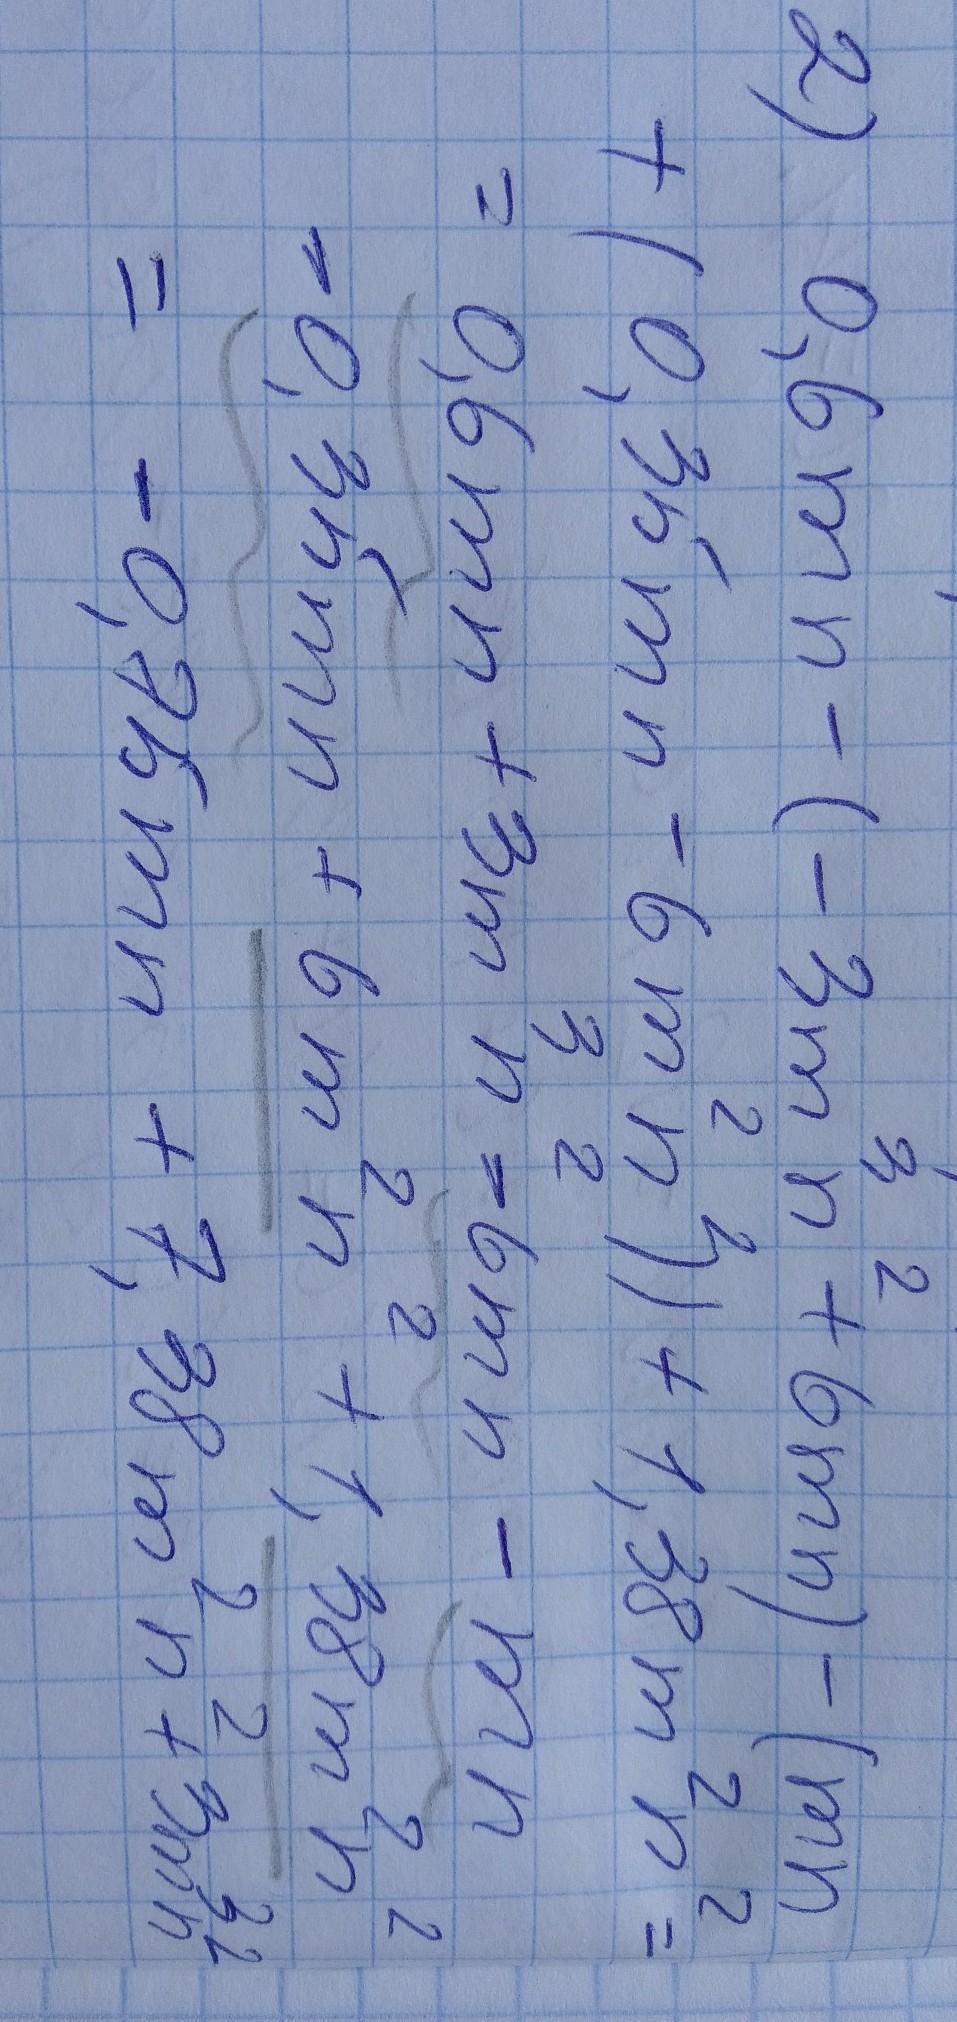 2) 0,6mn - (-3m³n² + 6mn) - (mn
+ (0,34mn - 6m²n²)) + 1,38m²n² =
= 0,6mn + 3m³n² - 6mn - mn -
- 0,34mn + 6m²n² + 1,38m²n² =
= - 0,74mn + 7,38m²n² + 3m³n²